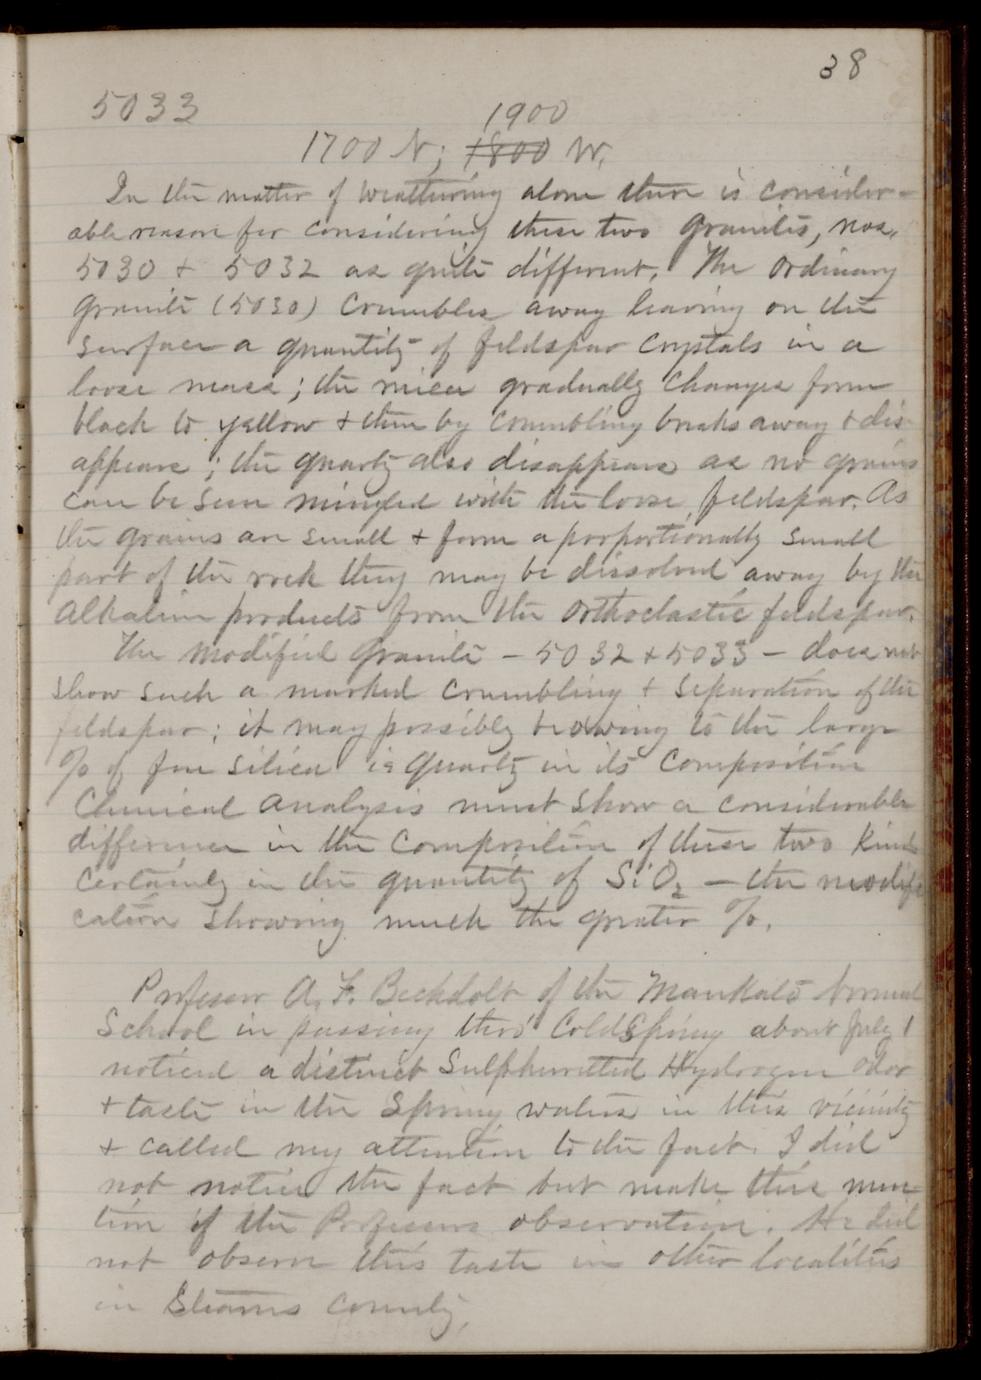 38
5033
1900
1700 N; 1800 W.
In the matter of weathering alone there is consider-
able reason for considering these two granites, nos.
5030 + 5032 as quite different. The ordinary
granite (5030) crumbles away leaving on the
surface a quantity of feldspar crystals in a
loose mass; the mica gradually changes from
black to yellow + then by crumbling breaks away + dis-
appears; the quartz also disappears as no grains
can be seen mingled with the loose feldspar. As
the grains are small + form a proportionally small
part of the rock they may be dissolved away by the
alkaline products from the orthoclastic feldspar.
The modified granite - 5032 + 5033 - does not
show such a marked crumbling + separation of the
feldspar; it may possibly be owing to the large
% of free silica is quartz in its composition
Chemical analysis must show a considerable
difference in the composition of these two kinds
certainly in the quantity of SiO2 - the modifi
cation showing much the greater %.
Professor A. F. Bechdolt of the Mankato Normal
School in passing thro' Cold Spring about July 1
noticed a distinct Sulphuretted Hydrogen odor
+ taste in the Spring waters in this vicinity
+ called my attention to the fact. I did
not notice the fact but make this men-
tion of the Professors observation. He did
not observe this taste in other localities
in Stearns County.